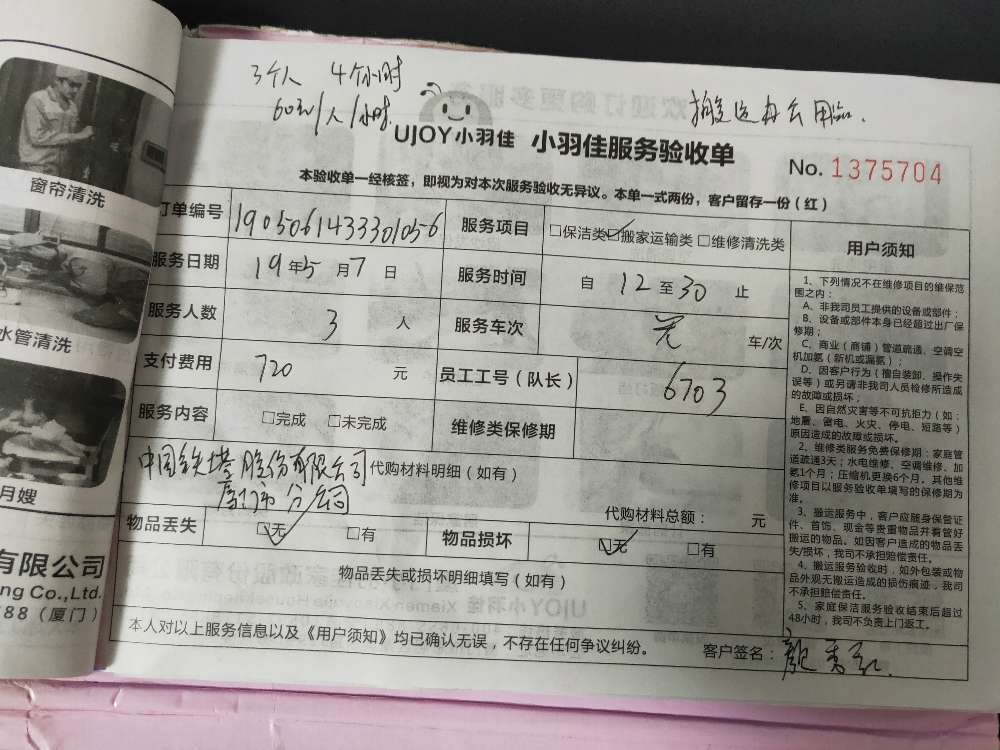 3个人 4个小时
60元/人/小时
搬运办公用品.
UJOY小羽佳 小羽佳服务验收单
No. 1375704
本验收单一经核签，即视为对本次服务验收无异议。本单一式两份，客户留存一份（红）
订单编号 190506143330105-6 服务项目 □保洁类 ☑搬家运输类 □维修清洗类
服务日期 19年5月7日 服务时间 自 12 至 30 止
服务人数 3 人 服务车次 无 车/次
支付费用 720 元 员工工号（队长） 6703
服务内容 □完成 □未完成 维修类保修期
中国铁塔股份有限公司 代购材料明细（如有）
厦门市分公司
代购材料总额： 元
物品丢失 ☑无 □有 物品损坏 ☑无 □有
物品丢失或损坏明细填写（如有）
本人对以上服务信息以及《用户须知》均已确认无误，不存在任何争议纠纷。 客户签名：颜秀红.
用户须知
1、下列情况不在维修项目的维保范
围之内：
A、非我司员工提供的设备或部件；
B、设备或部件本身已经超过出厂保
修期；
C、商业（商铺）管道疏通、空调空
机加氨（新机或漏氨）；
D、因客户行为（擅自装卸、操作失
误等）或另请非我司人员检修所造成
的故障或损坏；
E、因自然灾害等不可抗拒力（如：
地震、雷电、火灾、停电、短路等）
原因造成的故障或损坏。
2、维修类服务免费保修期：家庭管
道疏通3天；水电维修、空调维修、加
氨1个月；压缩机更换6个月。其他维
修项目以服务验收单填写的保修期为
准。
3、搬运服务中，客户应随身保管证
件、首饰、现金等贵重物品并看管好
搬运的物品。如因客户造成的物品丢
失/损坏，我司不承担赔偿责任。
4、搬运服务验收时，如外包装或物
品外观无搬运造成的损伤痕迹，我司
不承担赔偿责任。
5、家庭保洁服务验收结束后超过
48小时，我司不负责上门返工。
窗帘清洗
水管清洗
月嫂
有限公司
ng Co.,Ltd.
88（厦门）